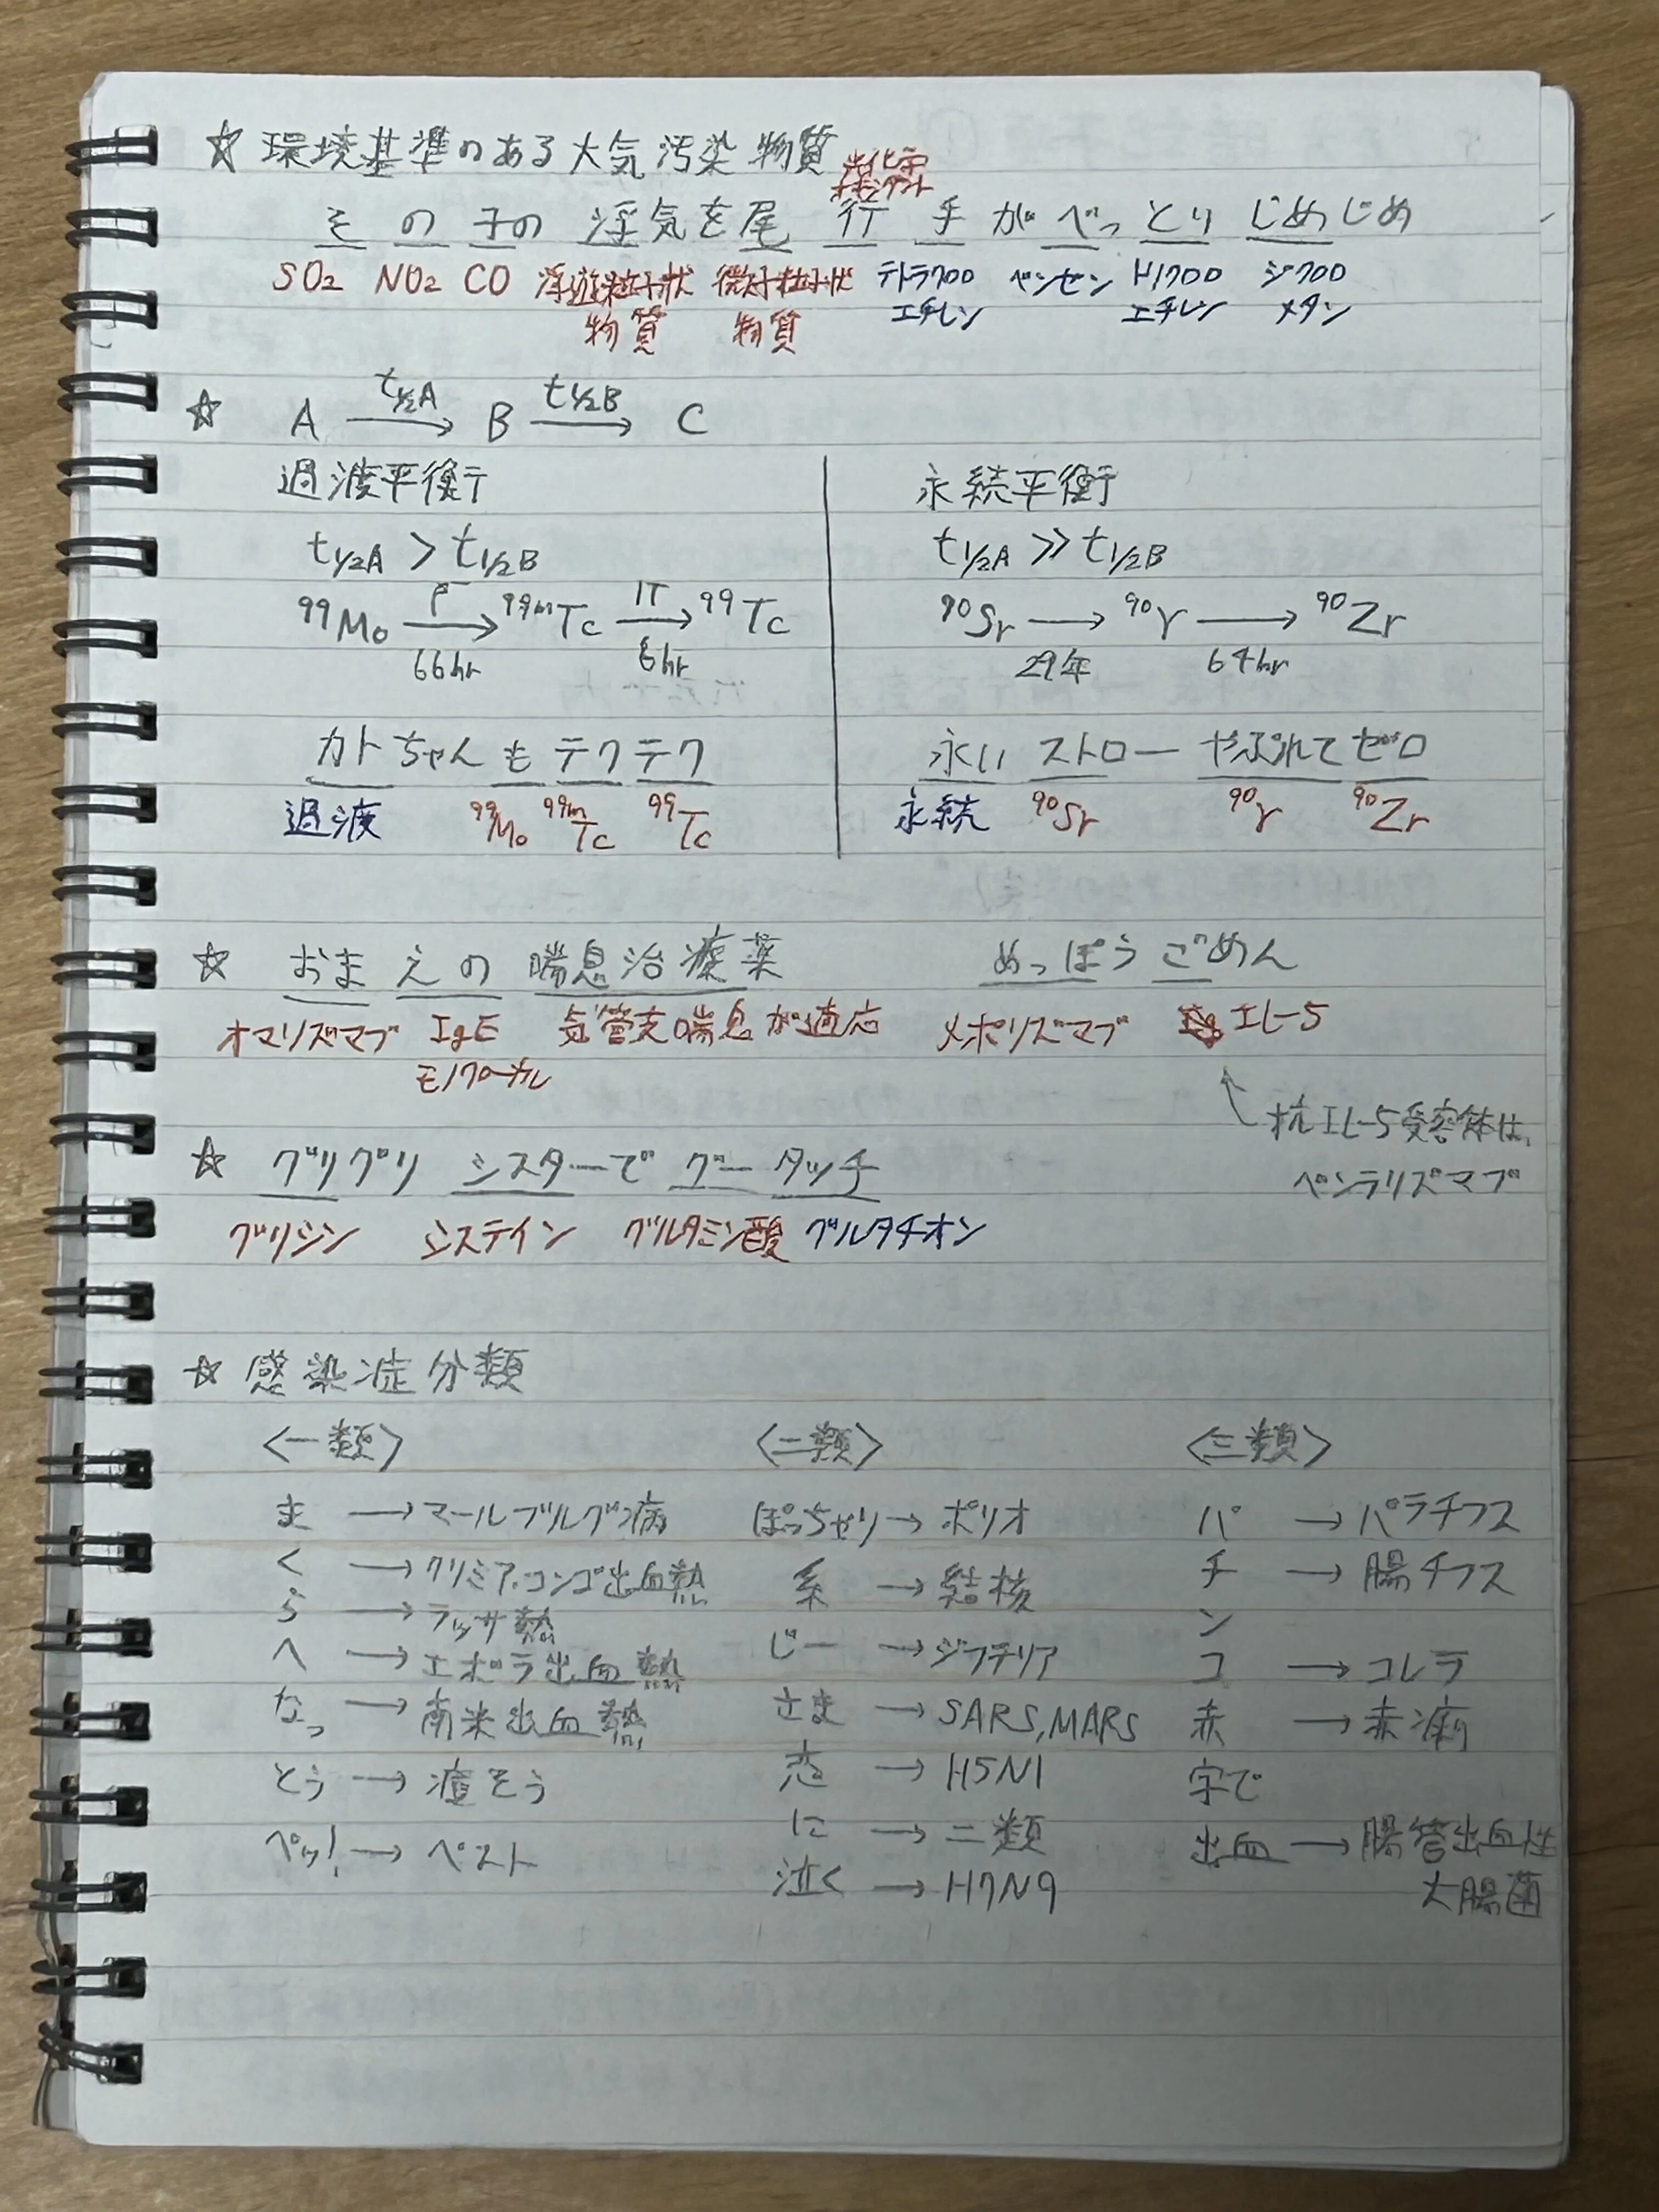 ☆ 環境基準のある大気汚染物質
光化学
オキシダント
その子の浮気を尾行 手がべっとりじめじめ
SO₂ NO₂ CO 浮遊粒子状 微小粒子状 テトラクロロ ベンゼン トリクロロ ジクロロ
物質 物質 エチレン エチレン メタン
☆ A →(t1/2A) B →(t1/2B) C
過渡平衡
t1/2A > t1/2B
⁹⁹Mo →(β⁻ 66hr) ⁹⁹ᵐTc →(IT 6hr) ⁹⁹Tc
カトちゃんもテクテク
過渡 ⁹⁹Mo ⁹⁹ᵐTc ⁹⁹Tc
永続平衡
t1/2A ≫ t1/2B
⁹⁰Sr →(29年) ⁹⁰Y →(64hr) ⁹⁰Zr
永いストローやぶれてゼロ
永続 ⁹⁰Sr ⁹⁰Y ⁹⁰Zr
☆ おまえの喘息治療薬 めっぽうごめん
オマリズマブ IgE 気管支喘息が適応 メポリズマブ IL-5
モノクローナル
↑ 抗IL-5受容体は、
ベンラリズマブ
☆ グリグリ シスターで グータッチ
グリシン システイン グルタミン酸 グルタチオン
☆ 感染症分類
〈一類〉
ま → マールブルグ病
く → クリミア・コンゴ出血熱
ら → ラッサ熱
へ → エボラ出血熱
なっ → 南米出血熱
とう → 痘そう
ペッ! → ペスト
〈二類〉
ぽっちゃり → ポリオ
系 → 結核
じー → ジフテリア
さま → SARS,MARS
恋 → H5N1
に → 二類
泣く → H7N9
〈三類〉
パ → パラチフス
チ → 腸チフス
ン
コ → コレラ
赤 → 赤痢
字で
出血 → 腸管出血性
大腸菌